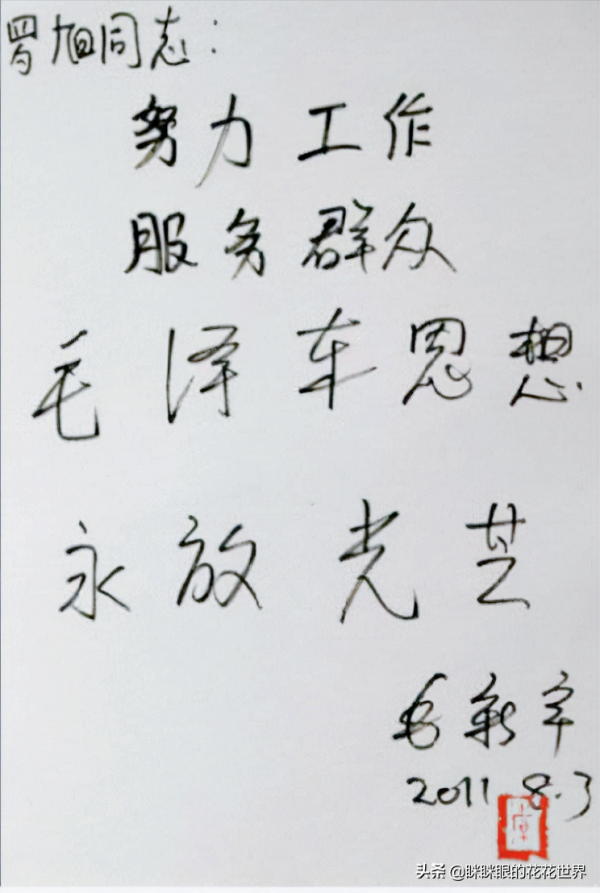 罗旭同志:
努力工作
服务群众
毛泽东思想
永放光芒
毛新宇
2011.8.3
头条 @眯眯眼的花花世界